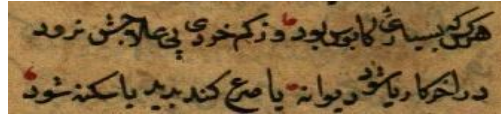 هرکس که کابوس بود وز کم خردی پی علاجش نرود
در اخر کار یا شود دیوانه یا صرع کند پدید یا سکته شود